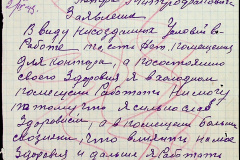 Заявление
В виду Несоздания Условий в
Работе то есть Нет помещения
для контора, а по состоянию
своего Здоровия я в холодном
помещении Работать Ни могу
потому что я сильно слаб
Здоровием, а в помещении больш
сквозняки, что влияет на мое
Здоровия и дальше я Работать